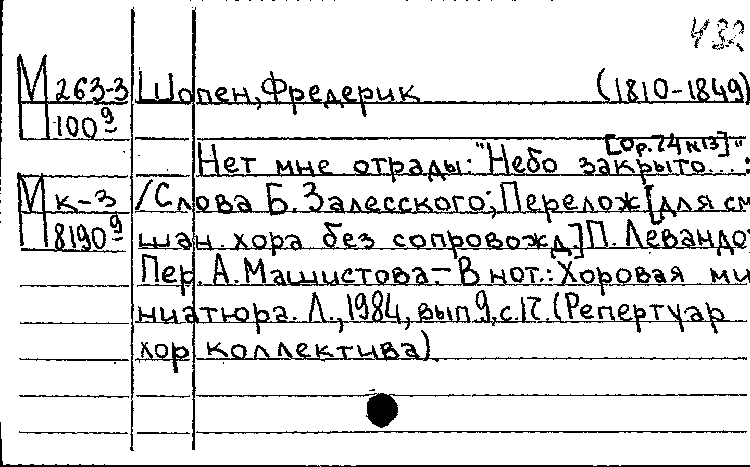 432
М 263-3 Шопен, Фредерик (1810-1849)
П 100⁹
[Ор.74 №13]"
Нет мне отрады: "Небо закрыто...:
М к-3 /Слова Б. Залесского; Перелож [для см
П 8190⁹ шан. хора без сопровожд.] П. Левандо
Пер. А. Машистова.- В нот.: Хоровая ми
ниатюра. Л., 1984, вып 9, с.17. (Репертуар
хор коллектива).